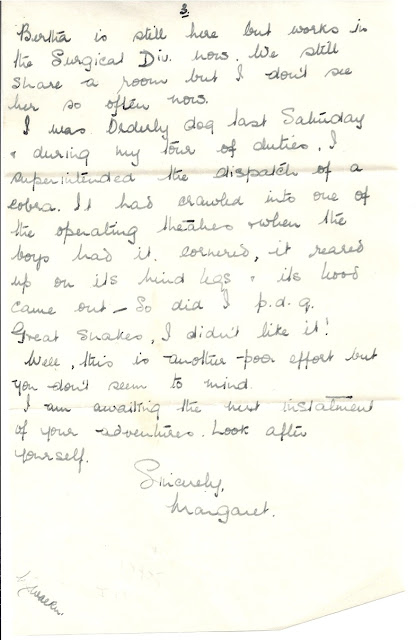 3.
Bertha is still here but works in
the Surgical Div. now. We still
share a room but I don't see
her so often now.
I was Orderly dog last Saturday
& during my tour of duties, I
superintended the dispatch of a
cobra. It had crawled into one of
the operating theatres & when the
boys had it cornered, it reared
up on its hind legs & its hood
came out – So did I p.d.q.
Great Snakes, I didn't like it!
Well, this is another poor effort but
you don't seem to mind
I am awaiting the next instalment
of your adventures. Look after
yourself.
Sincerely,
Margaret.